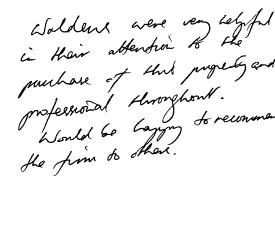 Waldens were very helpful
in their attention to the
purchase of this property and
professional throughout.
Would be happy to recomme
the firm to others.